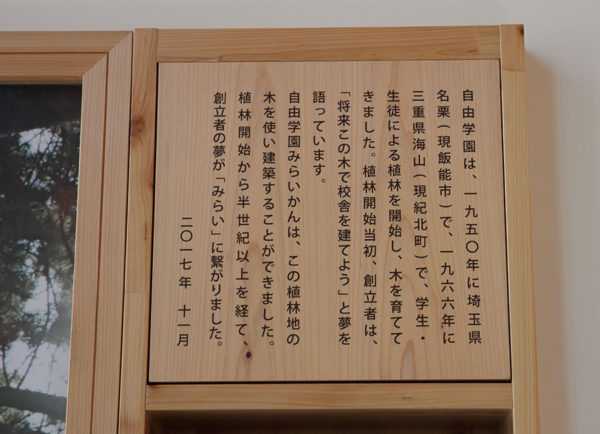 自由学園は、一九五〇年に埼玉県
名栗(現飯能市)で、一九六六年に
三重県海山(現紀北町)で、学生・
生徒による植林を開始し、木を育てて
きました。植林開始当初、創立者は、
「将来この木で校舎を建てよう」と夢を
語っています。
自由学園みらいかんは、この植林地の
木を使い建築することができました。
植林開始から半世紀以上を経て、
創立者の夢が「みらい」に繋がりました。
二〇一七年 十一月